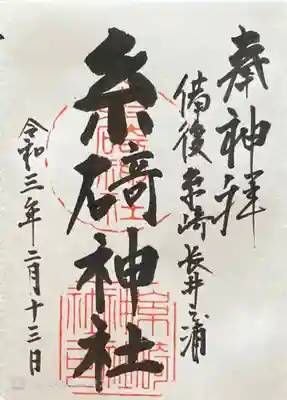 奉神拜
備後糸崎長井之浦
糸碕神社
令和三年二月十三日